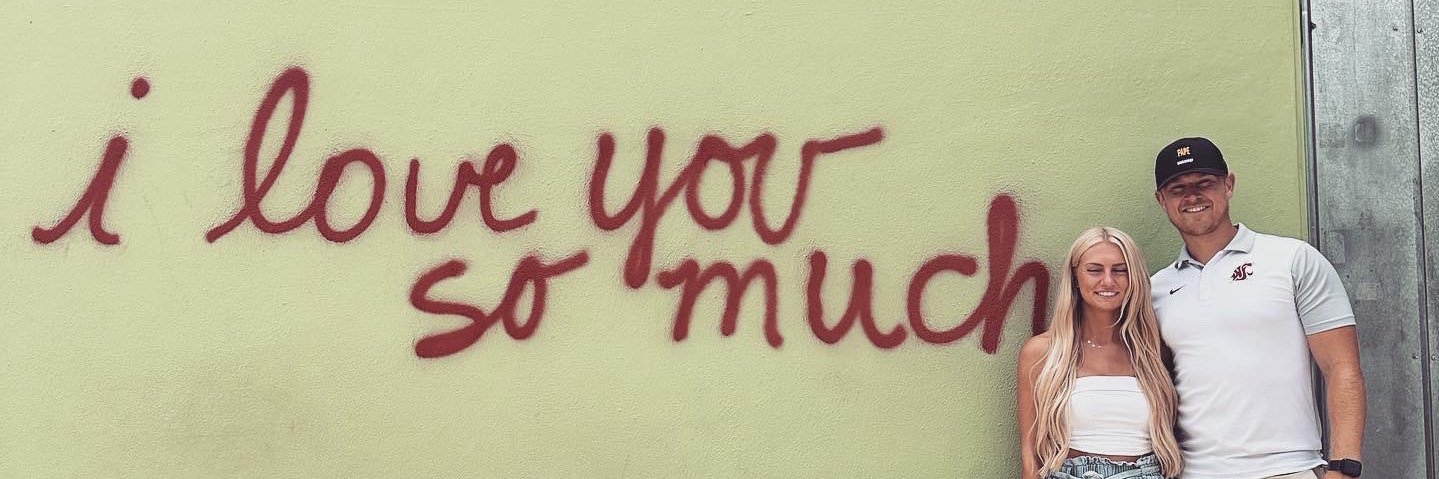 i love you
so much
PAPE